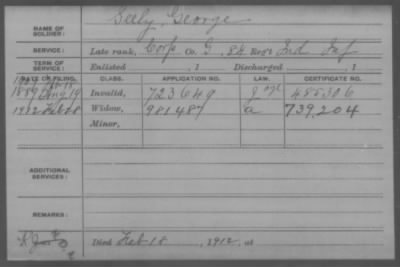 NAME OF SOLDIER: Seely, George
SERVICE: Late rank, Corp Co. G, 84 Reg't Ind Inf
TERM OF SERVICE: Enlisted , 1 Discharged , 1
DATE OF FILING. CLASS. APPLICATION NO. LAW. CERTIFICATE NO.
1889 Aug 19 Invalid, 723649 485306
1912 Feb 28 Widow, 981487 a 739,204
Minor,
ADDITIONAL SERVICES:
REMARKS:
Died Feb 18, 1912, at